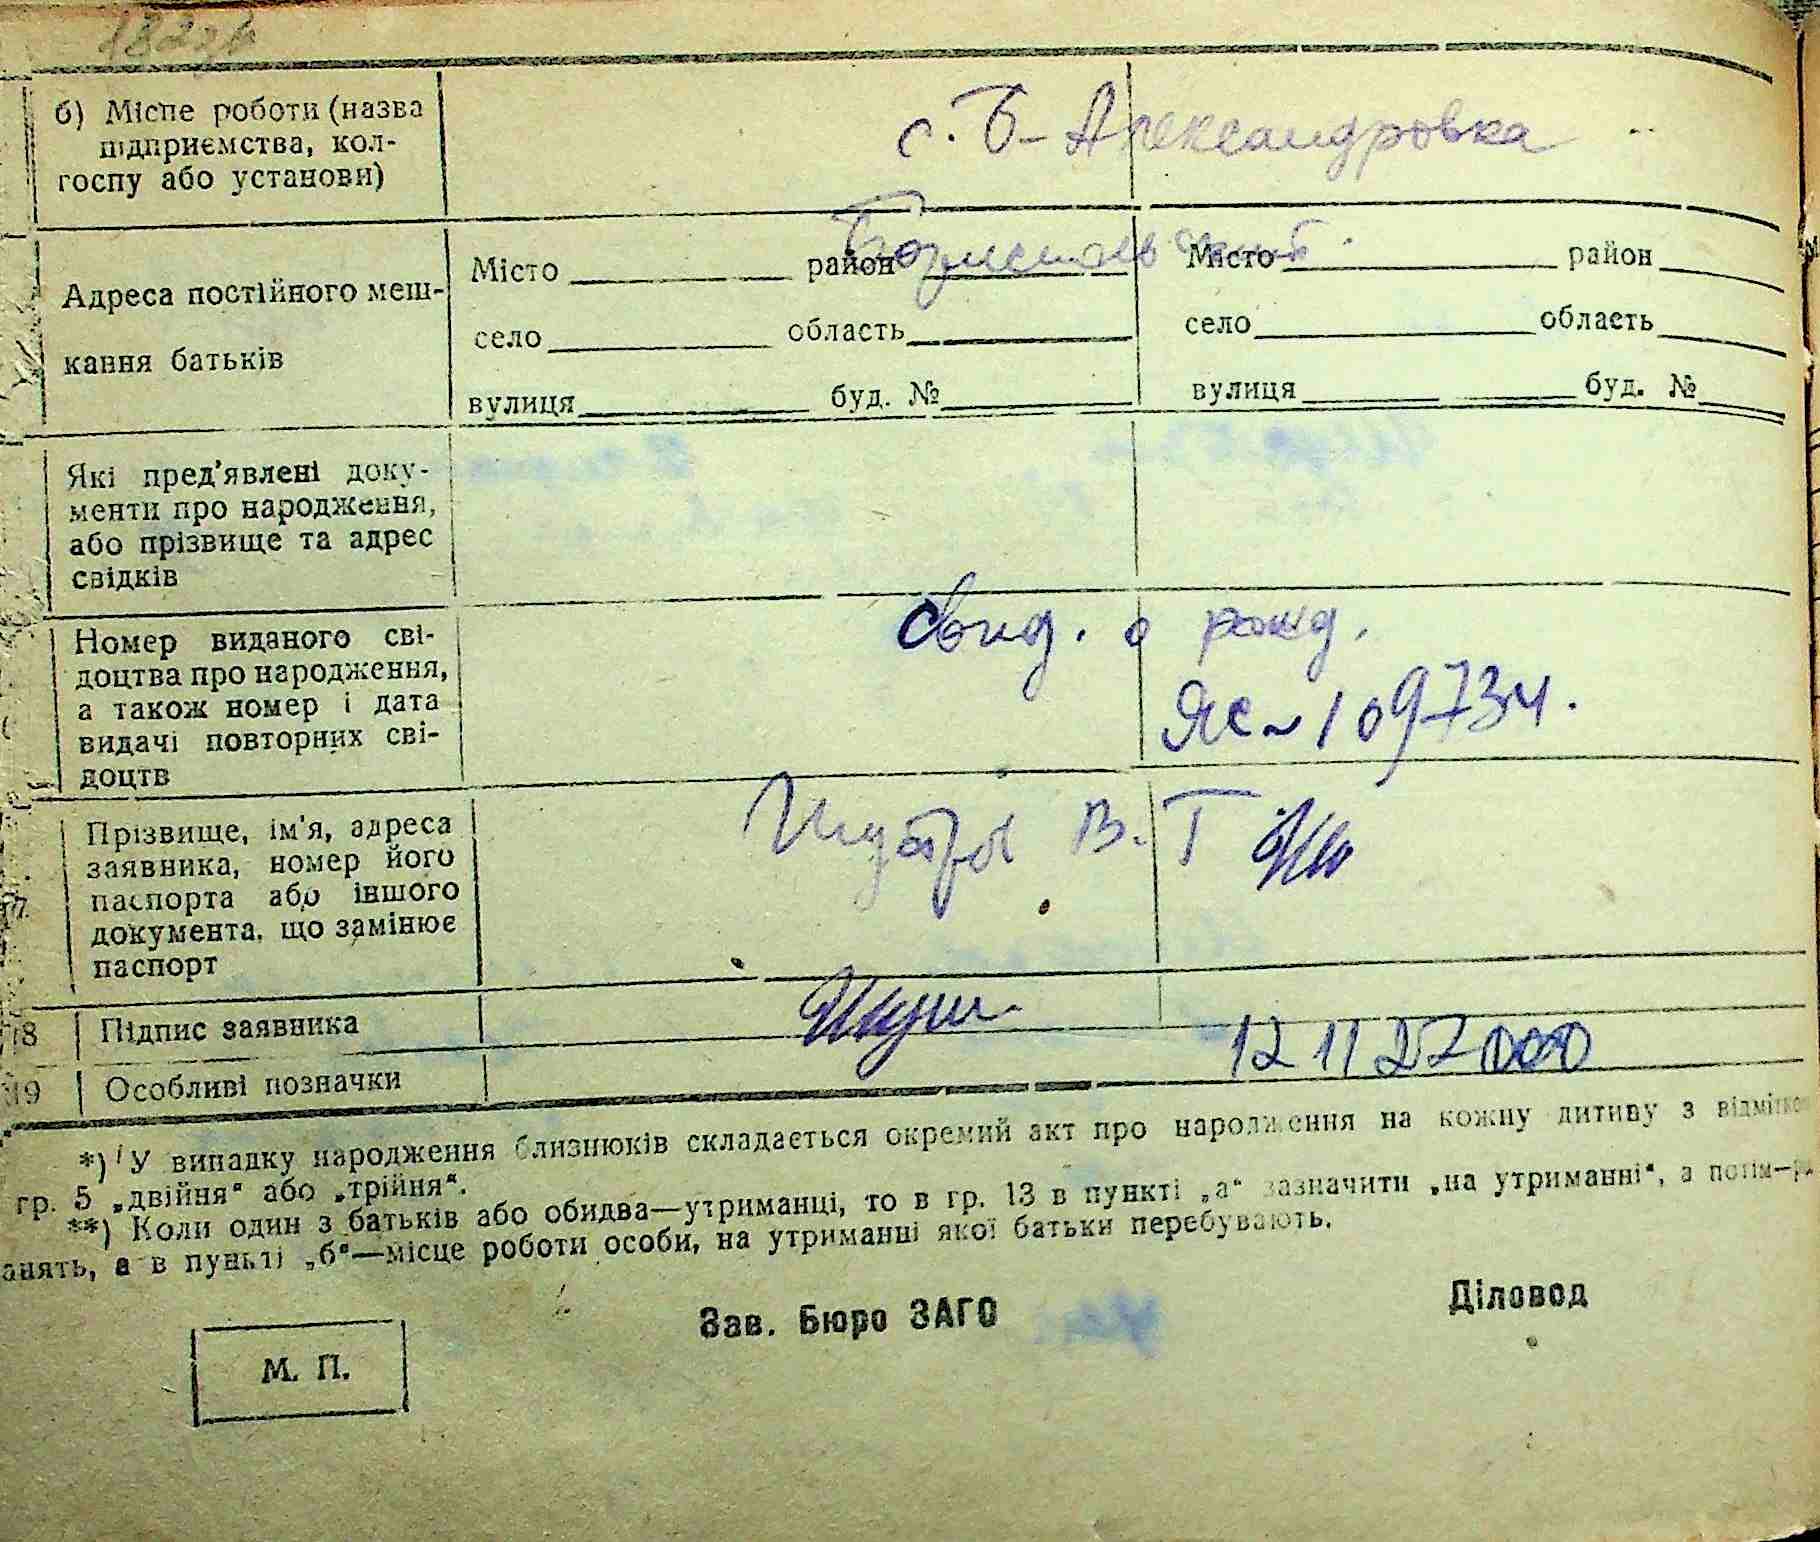 б) Міспе роботи (назва
підприємства, кол-
госпу або установи)
с. Б-Александровка
Адреса постійного меш-
кання батьків
Місто район Місто район
село область село область
вулиця буд. № вулиця буд. №
Які пред'явлені доку-
менти про народження,
або прізвище та адрес
свідків
Номер виданого сві-
доцтва про народження,
а також номер і дата
видачі повторних сві-
доцтв
Свид. о рожд.
ЯС~109734.
Прізвище, ім'я, адреса
заявника, номер його
паспорта або іншого
документа, що замінює
паспорт
В. Т
18 Підпис заявника
19 Особливі позначки
12 11 27
*) У випадку народження близнюків складається окремий акт про народження на кожну дитину з відміткою
гр. 5 „двійня“ або „трійня“.
**) Коли один з батьків або обидва—утриманці, то в гр. 13 в пункті „а“ зазначити „на утриманні“, а потім—
анять, а в пункті „б“—місце роботи особи, на утриманні якої батьки перебувають.
Зав. Бюро ЗАГС Діловод
М. П.